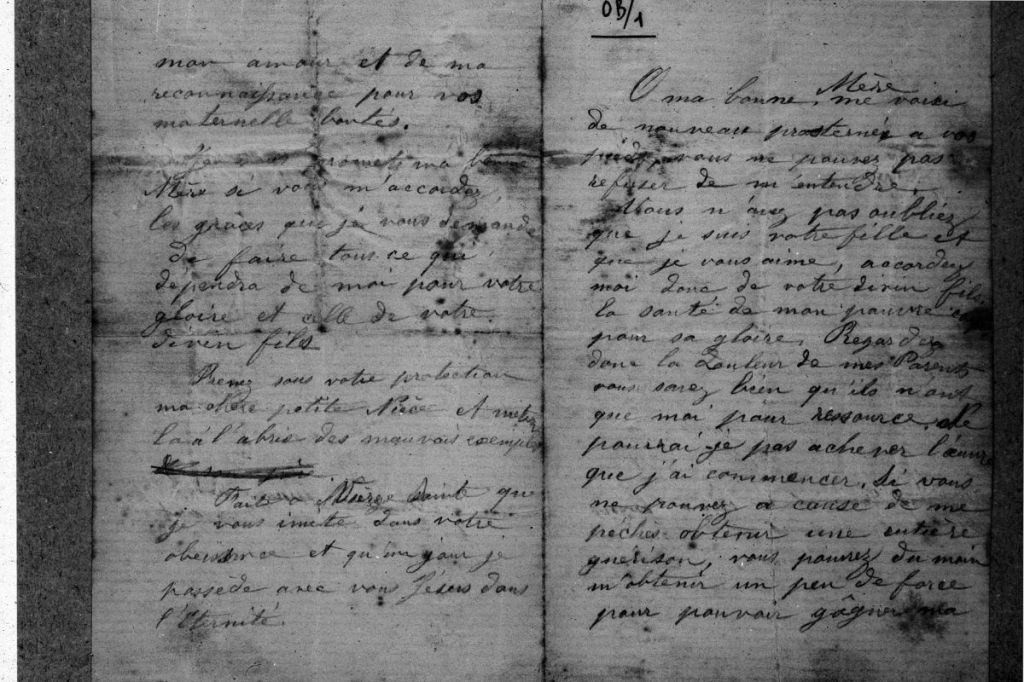 mon amour et de ma
reconnaissance pour vos
maternelle bontés.
Je vous promets ma bonne
Mère si vous m'accordez
les graces que je vous demande
de faire tous ce qui
dépendra de moi pour votre
gloire et celle de votre
divin fils
Prenez sous votre protection
ma chère petite Nièce et metez
la à l'abris des mauvais exemples
Faite o Vierge Sainte que
je vous imite dans votre
obeissance et qu'un jour je
possède avec vous Jésus dans
l'Eternité.
OB/1
O ma bonne Mère me voici
de nouveau prosternée a vos
pieds, vous ne pouvez pas
refuser de m'entendre.
Vous n'avez pas oubliez
que je suis votre fille et
que je vous aime, accordez
moi donc de votre divin fils
la santé de mon pauvre
pour sa gloire. Regardez
donc la douleur de mes Parents
vous savez bien qu'ils n'ont
que moi pour ressource. Ne
pourrai je pas achever l'œuvre
que j'ai commencer. Si vous
ne pouvez a cause de me
péchés obtenir une entière
guérison, vous pourrez du moin
m'obtenir un peu de force
pour pouvoir gâgner ma